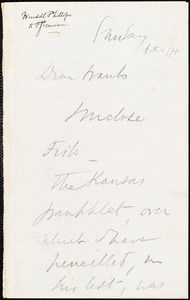 Wendell Phillips
to
Sunday
Dear
I enclose
The Kansas
pamphlet, over
which I have
pencilled, in
his list, was